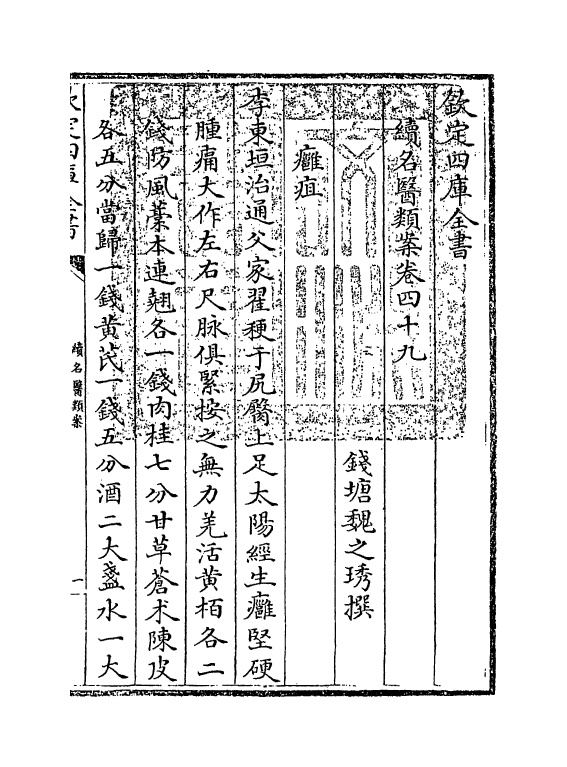 欽定四庫全書
續名醫類案卷四十九
錢塘魏之琇撰
癰疽
李東垣治通父家翟稉于尻臀上足太陽經生癰堅硬
腫痛大作左右尺脉俱緊按之無力羌活黄栢各二
錢防風藁本連翹各一錢肉桂七分甘草蒼术陳皮
各五分當歸一錢黄芪一錢五分酒二大盞水一大
欽定四庫全書
續名醫類案
一